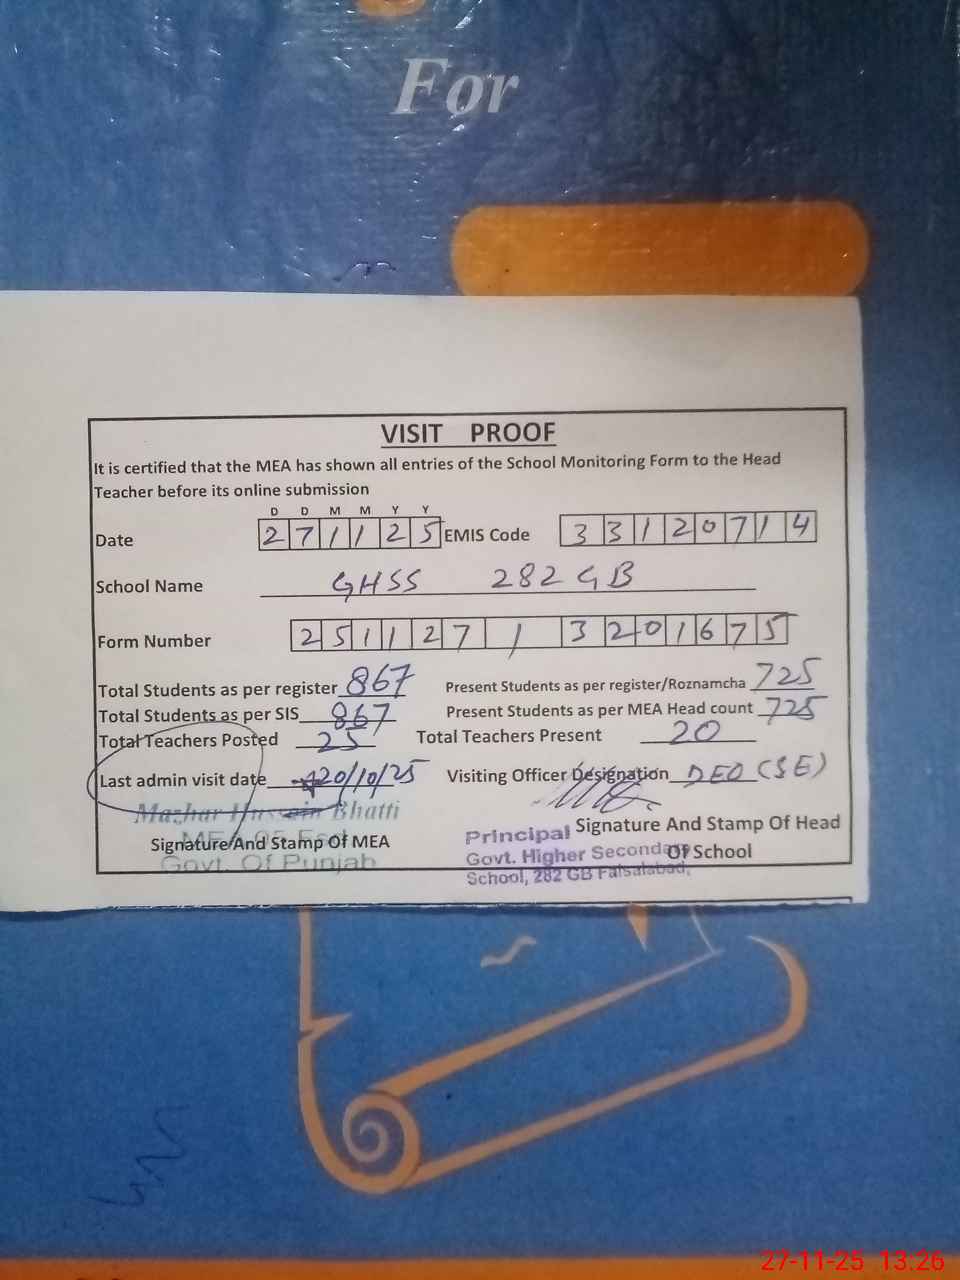 For
VISIT PROOF
It is certified that the MEA has shown all entries of the School Monitoring Form to the Head
Teacher before its online submission
D D M M Y Y
Date 27 11 25 EMIS Code 33120714
School Name GHSS 282 GB
Form Number 251127 1 3201675
Total Students as per register 867 Present Students as per register/Roznamcha 725
Total Students as per SIS 867 Present Students as per MEA Head count 725
Total Teachers Posted 25 Total Teachers Present 20
Last admin visit date 20/10/25 Visiting Officer Designation DEO (SE)
Mazhar Hussain Bhatti
Signature And Stamp Of MEA
Govt. Of Punjab
Signature And Stamp Of Head
Of School
Principal
Govt. Higher Secondary
School, 282 GB Faisalabad,
27-11-25 13:26